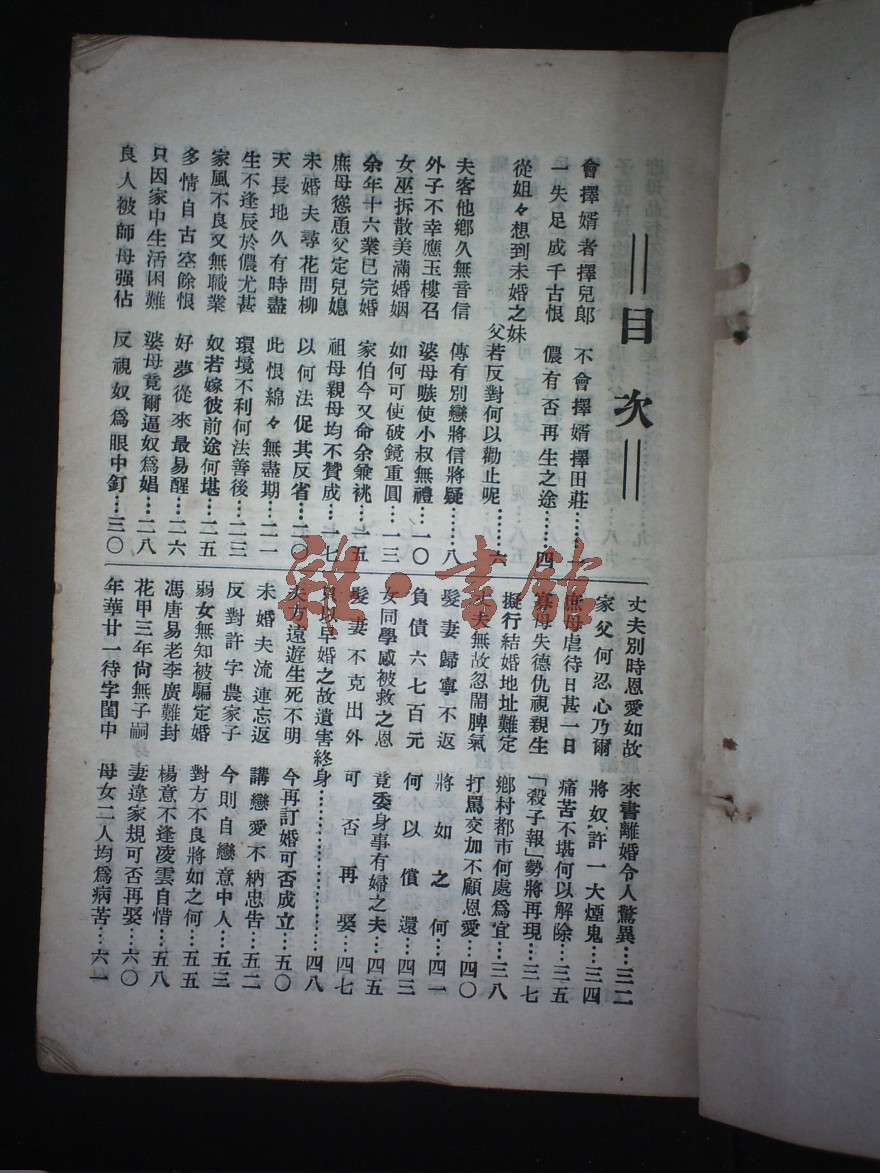 目次
會擇婿者擇兒郞 不會擇婿擇田莊……一
一失足成千古恨 儂有否再生之途……四
從姐々想到未婚之妹 父若反對何以勸止呢……六
夫客他鄕久無音信 傳有別戀將信將疑……八
外子不幸應玉樓召 婆母嗾使小叔無禮…一〇
女巫拆散美滿婚姻 如何可使破鏡重圓…一三
余年十六業已完婚 家伯今又命余兼祧…一五
庶母慫恿父定兒媳 祖母親母均不贊成…一七
未婚夫尋花問柳 以何法促其反省…二〇
天長地久有時盡 此恨綿々無盡期…二一
生不逢辰於儂尤甚 環境不利何法善後…二三
家風不良又無職業 奴若嫁彼前途何堪…二五
多情自古空餘恨 好夢從來最易醒…二六
只因家中生活困難 婆母竟爾逼奴爲娼…二八
良人被師母强佔 反視奴爲眼中釘…三〇
丈夫別時恩愛如故 來書離婚令人驚異…三二
家父何忍心乃爾 將奴許一大煙鬼…三四
庶母虐待日甚一日 痛苦不堪何以解除…三五
寡母失德仇視親生 「殺子報」勢將再現…三七
擬行結婚地址難定 鄕村都市何處爲宜…三八
丈夫無故忽鬧脾氣 打駡交加不顧恩愛…四〇
髮妻歸寧不返 將如之何…四一
負債六七百元 何以償還…四三
女同學感被救之恩 竟委身事有婦之夫…四五
髮妻不克出外 可否再娶…四七
負以早婚之故遺害終身……四八
夫方遠遊生死不明 今再訂婚可否成立…五〇
未婚夫流連忘返 講戀愛不納忠告…五二
反對許字農家子 今則自戀意中人…五三
弱女無知被騙定婚 對方不良將如之何…五五
馮唐易老李廣難封 楊意不逢凌雲自惜…五八
花甲三年尙無子嗣 妻違家規可否再娶…六〇
年華廿一待字閨中 母女二人均爲病苦…六一
雜·書館